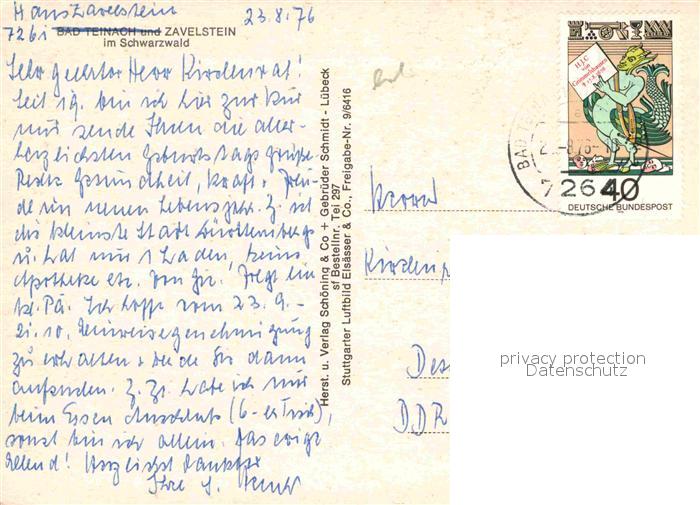 Haus Zavelstein
23.8.76
7261 BAD TEINACH und ZAVELSTEIN
im Schwarzwald
Sehr geehrter Herr Kirchenrat!
Seit 19. bin ich hier zur Kur
und sende Ihnen die aller-
herzlichsten Geburtstagsgrüße
Gesundheit, Kraft + Freu-
de im neuen Lebensjahr. Z. ist
die kleinste Stadt Württembergs
u. hat nur 1 Laden, keine
Apotheke etc.
Ich hoffe vom 23.9.-
21.10. Einreisegenehmigung
zu erhalten + werde Sie dann
aufsuchen. Z. Zt. habe ich nur
beim Essen Anschluß (6-er Tisch),
sonst bin ich allein. Das ewige
Elend! Herzlichst
Ihre
Herst. u. Verlag Schöning & Co + Gebrüder Schmidt - Lübeck
sf Bestellnr. Tei 297
Stuttgarter Luftbild Elsässer & Co., Freigabe-Nr. 9/6416
Herrn
Des
DDR
H.J.C.
von
Grimmelshausen
40
DEUTSCHE BUNDESPOST
BAD
7264
privacy protection
Datenschutz